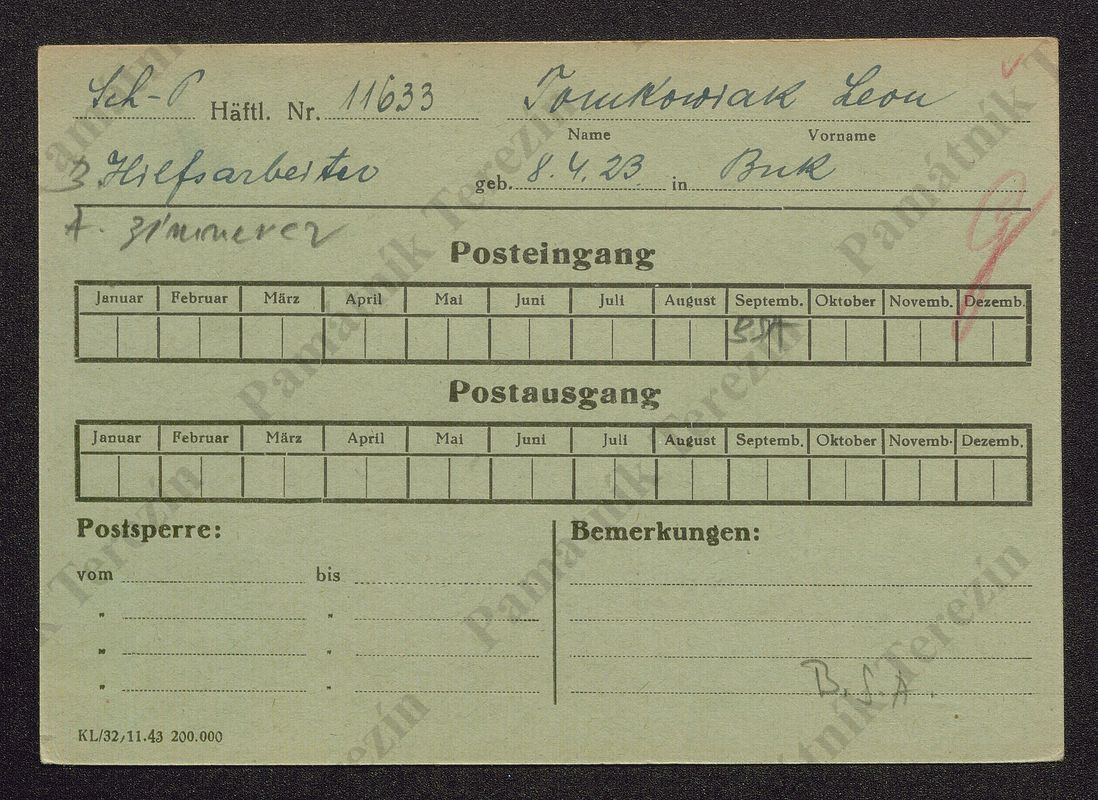 Sch-P Häftl. Nr. 11633 Tomkowiak Leon
Name Vorname
Hilfsarbeiter geb. 8.4.23 in Buk
A. Zimmerer
Posteingang
Januar Februar März April Mai Juni Juli August Septemb. Oktober Novemb. Dezemb.
BSA
Postausgang
Januar Februar März April Mai Juni Juli August Septemb. Oktober Novemb. Dezemb.
Postsperre: Bemerkungen:
vom bis
" "
" "
" "
B.S.A.
KL/32/11.43 200.000
Památník Terezín